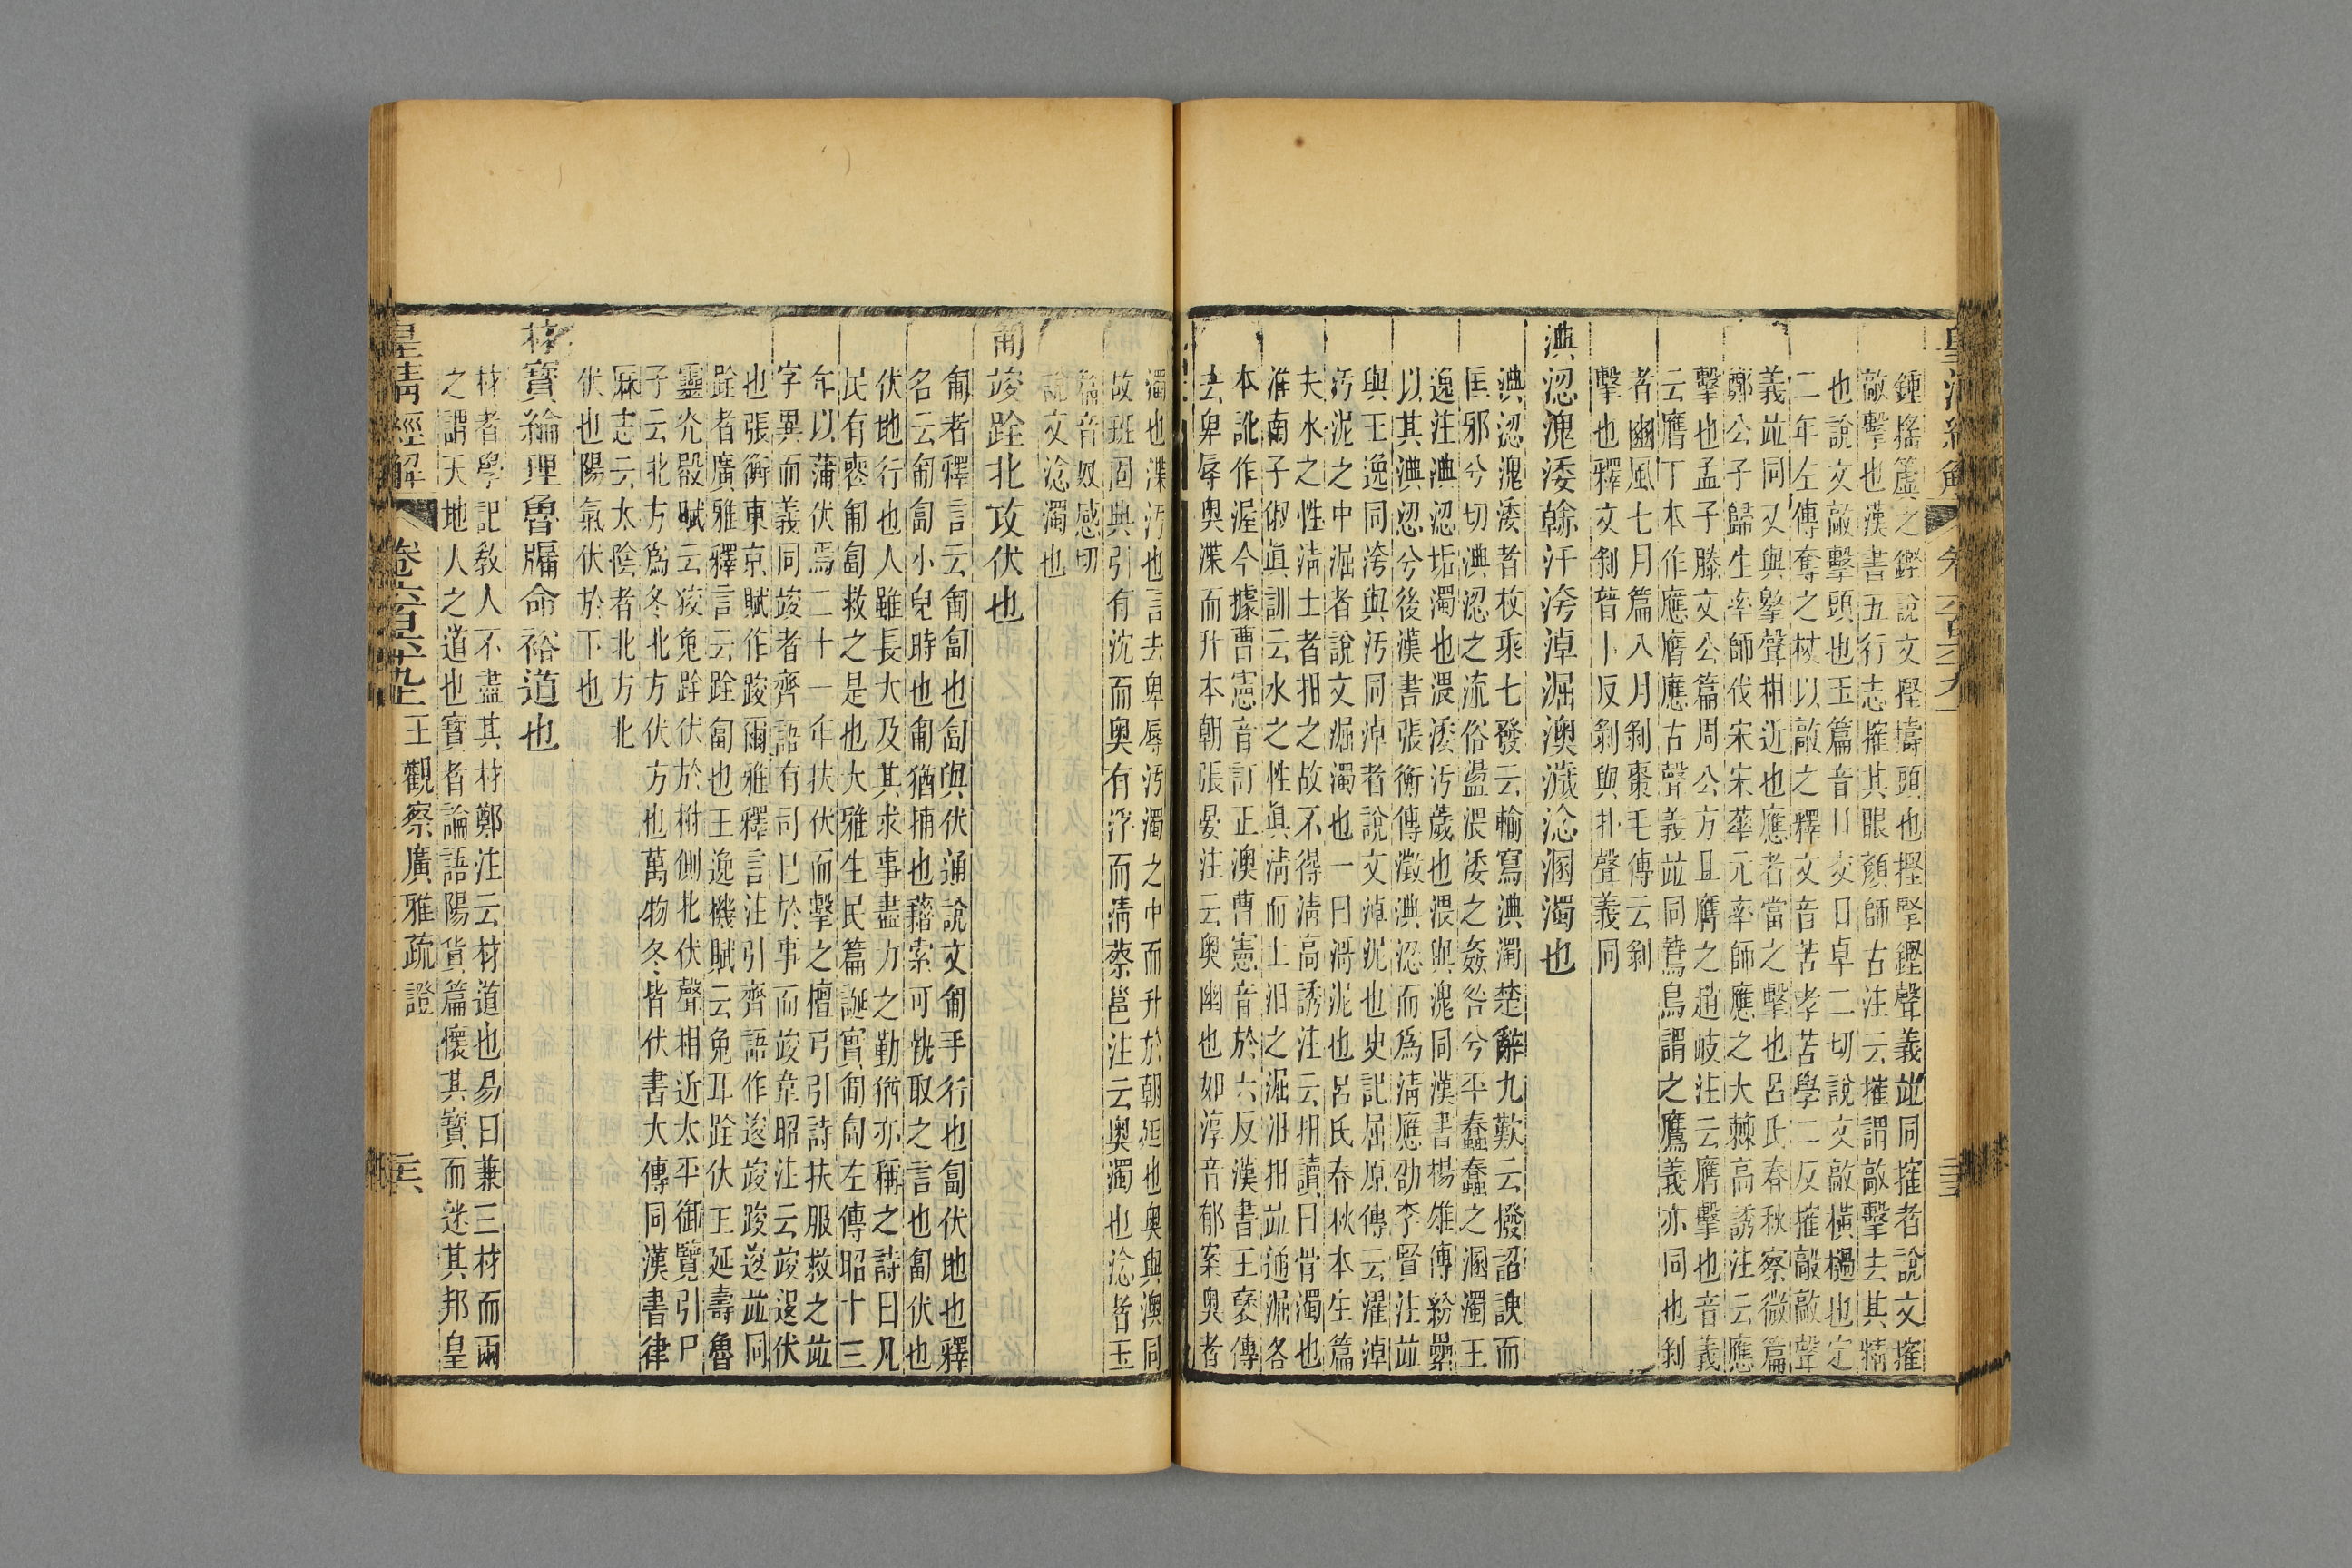 鍾搖簴之鏗說文摼擣頭也摼掔鏗聲義竝同搉者說文搉
敲擊也漢書五行志搉其眼顏師古注云搉謂敲擊去其精
也說文敲擊頭也玉篇音口交口卓二切說文敲橫擿也定
二年左傳奪之杖以敲之釋文音苦孝苦學二反搉敲敲聲
義竝同又與摮聲相近也應者當之擊也呂氏春秋察微篇
鄭公子歸生率師伐宋宋華元率師應之大棘高誘注云應
擊也孟子滕文公篇周公方且膺之趙岐注云膺擊也音義
云膺丁本作應膺應古聲義竝同鷙鳥謂之鷹義亦同也剝
者豳風七月篇八月剝棗毛傳云剝
擊也釋文剝普卜反剝與扑聲義同
淟涊溾涹㵄汗洿淖淈澳濊淰溷濁也
淟涊溾涹者枚乘七發云輸寫淟濁楚辭九歎云撥諂諛而
匡邪兮切淟涊之流俗盪渨涹之姦咎兮平蠢蠢之溷濁王
逸注淟涊垢濁也渨涹汚薉也渨與溾同漢書楊雄傳紛纍
以其淟涊兮後漢書張衡傳澂淟涊而爲淸應劭李賢注竝
與王逸同洿與汚同淖者說文淖泥也史記屈原傳云濯淖
汚泥之中淈者說文淈濁也一曰滒泥也呂氏春秋本生篇
夫水之性淸土者抇之故不得淸高誘注云抇讀曰骨濁也
淮南子俶眞訓云水之性眞淸而土汩之淈汩抇竝通淈各
本訛作渥今據曹憲音訂正澳曹憲音於六反漢書王襃傳
去卑辱奥渫而升本朝張晏注云奥幽也如淳音郁案奥者
濁也渫汚也言去卑辱汚濁之中而升於朝廷也奥與澳同
故班固典引有沈而奥有浮而淸蔡邕注云奥濁也淰者玉
篇音奴感切
說文淰濁也
匍竣跧北攻伏也
匍者釋言云匍匐也匐與伏通說文匍手行也匐伏地也釋
名云匍匐小兒時也匍猶捕也藉索可執取之言也匐伏也
伏地行也人雖長大及其求事盡力之勤猶亦稱之詩曰凡
民有喪匍匐救之是也大雅生民篇誕實匍匐左傳昭十三
年以蒲伏焉二十一年扶伏而擊之檀弓引詩扶服救之竝
字異而義同竣者齊語有司已於事而竣韋昭注云竣退伏
也張衡東京賦作踆爾雅釋言注引齊語作逡竣踆逡竝同
跧者廣雅釋言云跧匐也王逸機賦云兔耳跧伏王延壽魯
靈光殿賦云狡兔跧伏於柎側北伏聲相近太平御覽引尸
子云北方爲冬北方伏方也萬物冬皆伏書大傳同漢書律
厤志云太陰者北方北
伏也陽氣伏於下也
材寶綸理魯牖命裕道也
材者學記敎人不盡其材鄭注云材道也易曰兼三材而兩
之謂天地人之道也寶者論語陽貨篇懷其寶而迷其邦皇
皇淸經解 卷六百六十九上 王觀察廣雅疏證 三六